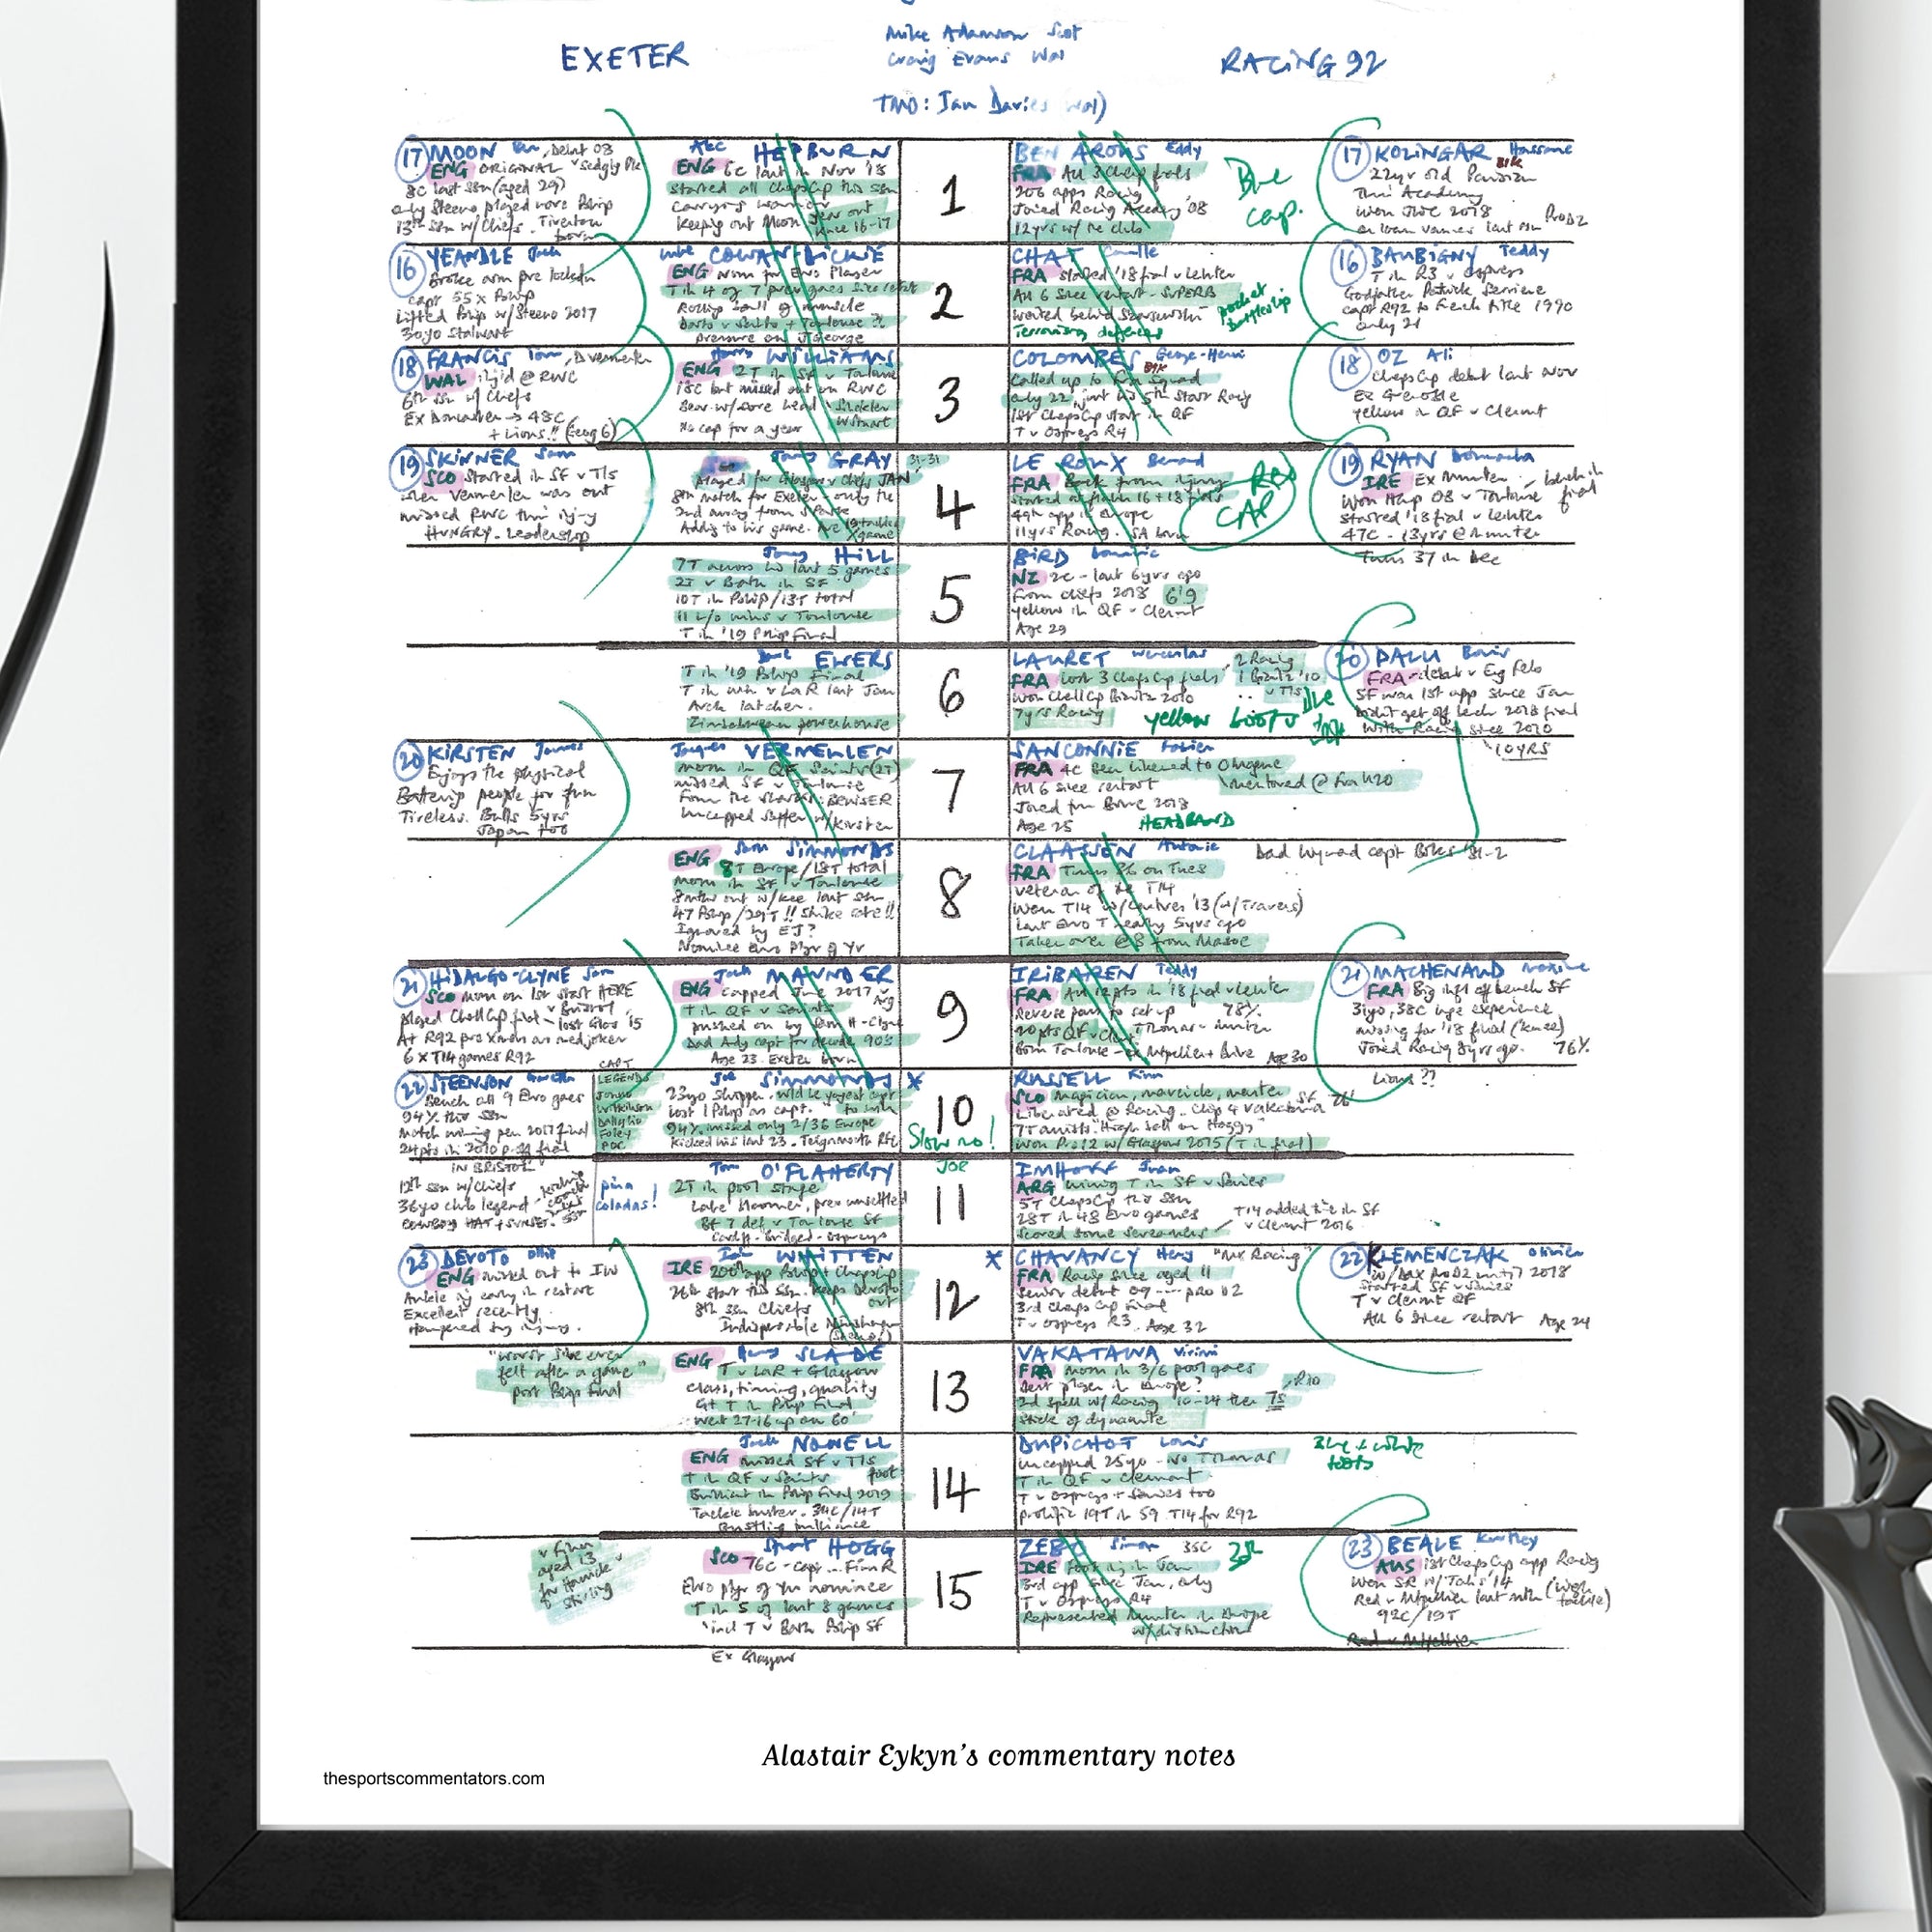 Mike Adamson Scot
EXETER
Craig Evans Wal
RACING 92
TMO: Ian Davies (Wal)
17 MOON , Debut 08
ENG ORIGINAL v Sedgly Pk
8c last ssn (aged 29)
only Steeno played more Pship
13th ssn w/ Chiefs. Tiverton
born
Alec HEPBURN
ENG 6c last in Nov '18
started all ChapsCup this ssn
carrying warrior
keeping out Moon year out
knee 16-17
1
BEN AROUS Eddy
FRA All 3 finals
206 apps Racing
Joined Racing Academy '08
12yrs w/ the club
Blue
cap.
17 KOLINGAR Hassane
22yr old Parisian
Academy
Won JWC 2018
on loan Vannes last ssn ProD2
16 YEANDLE Jack
Broke arm pre lockdn
capt 55 x Pship
Lifted Pship w/ Steeno 2017
30yo Stalwart
Luke COWAN-DICKIE
ENG Nom for Euro Player
T in 4 of 7 prev games since restart
Rolling ball of muscle
pressure on J George
2
CHAT Camille
FRA started '18 final v Leinster
All 6 since restart - SUPERB
waited behind Szarzewski
Terrorising defences
pocket
battleship
16 BAUBIGNY Teddy
T in R3 v Ospreys
Godfather Patrick Serriere
capt R92 to French title 1990
only 21
18 FRANCIS Tom, Doncaster
WAL inj'd @ RWC
6th ssn w/ Chiefs
Ex Doncaster → 48C
+ Lions!! (Geog 6)
Harry WILLIAMS
ENG 2T in SF v Toulouse
18C but missed out on RWC
Bear w/ sore head
No cap for a year
3
COLOMBES George-Henri
Called up to Fra Squad
only 22, just his 5th start Racing
1st ChapsCup start in QF
T v Ospreys R4
18 OZ Ali
ChapsCup debut last Nov
Ex Grenoble
yellow in QF v Clermt
19 SKINNER Sam
SCO Started in SF v Tls
when Vermeulen was out
missed RWC thru injy
HUNGRY. Leadership
GRAY 31-31
Played for Glasgow v Chiefs JAN
8th match for Exeter - only the
2nd away from S Park
Adding to his game. Ave 19 tackles
x game
4
LE ROUX Bernard
FRA Back from injury
started finals 16 + 18 finals
49th app in Europe
11yrs Racing. SA born
RED
CAP
19 RYAN Donnacha
IRE Ex Munster bench in
Won Hcup 08 v Toulouse final
started '18 final v Leinster
47C - 13yrs @ Munster
Turns 37 in Dec
Jonny HILL
7T across his last 5 games
2T v Bath in SF
10T in Pship/13T total
11 L/o wins v Toulouse
T in '19 Pship Final
5
BIRD Dominic
NZ 2c - last 6yrs ago
From Chiefs 2018 6'9
yellow in QF v Clermt
Age 29
Dave EWERS
T in '19 Pship Final
T in win v LaR last Jan
Zimbabwean powerhouse
6
LAURET Wenceslas
FRA Lost 3 ChapsCup finals
Won ChallCup Biarritz 2010
7yrs Racing
2 Racing
1 Biarritz '10
v Tls
yellow boots
20 PALU Boris
FRA debut v Eng Feb
SF won 1st app since Jan
Didn't get off bench 2018 final
With Racing since 2010
10YRS
20 KIRSTEN Jannes
Enjoys the physical
Battering people for fun
Tireless. Bulls 5yrs
Japan too
Jacques VERMEULEN
mom in QF Saints (2T)
missed SF v Toulouse
From the Sharks. BRUISER
uncapped Saffer w/ Kirsten
7
SANCONNIE Fabien
FRA 4c Been likened to Ologne
All 6 since restart
mentored @ Fra U20
Joined from Brive 2018
Age 25
HEADBAND
Sam SIMMONDS
ENG 8T Europe/18T total
mom in SF v Toulouse
8mths out w/ knee last ssn
47 Pship/29T!! Strike rate!!
Ignored by EJ?
Nominee Euro Plyr of Yr
8
CLAASSEN Antonie
Dad Wynand capt Boks '81-2
FRA Turns 36 on Tues
veteran of the T14
Won T14 w/ Castres '13 (w/ Travers)
last Euro T nearly 5yrs ago
Takes over @ 8 from Masoe
21 HIDALGO-CLYNE Sam
SCO Mom on 1st start HERE
v Bristol
played ChallCup final - lost Glos '15
At R92 pre Xmas as med joker
6 x T14 games R92
Jack MAUNDER
ENG capped June 2017 v Arg
T in QF v Saints
pushed on by Sam H-Clyne
Dad Andy capt for decade 90s
Age 23. Exeter born
9
IRIBAREN Teddy
FRA All 12pts in '18 final v Leinster
Reverse pass to set up 78%
20pts QF v Clermt Thomas - Munster
Born Toulouse - ex Mtpellier + Brive Age 30
21 MACHENAUD Maxime
FRA Big infl off bench SF
31yo, 38C huge experience
missing for '18 final (knee)
Joined Racing 8yrs ago. 76%
22 STEENSON Gareth
Bench all 9 Euro games
94% this ssn
match winning pen 2017 final
24pts in 2010 p-off final
IN BRISTOL
12th ssn w/ Chiefs
36yo club legend
COWBOY HAT + SUNSET.
CAPT
LEGENDS
Jonno
Wilkinson
Dallaglio
Foley
POC
piña
coladas!
Joe SIMMONDS *
23yo skipper. wld be yngest capt
lost 1 Pship as capt. to win
94% missed only 2/36 Europe
Kicked his last 23. Teignmouth RFC
10
Slow no!
JOE
RUSSELL Finn
SCO Magician, maverick, master
Liberated @ Racing. Chip 4 Vakatawa SF
Won Pro12 w/ Glasgow 2015 (T in final)
Lions??
Tom O'FLAHERTY
2T in pool stage
Late bloomer, prev unsettled
Bt 7 def v Toulouse SF
Cardiff - Bridgend - Ospreys
11
IMHOFF Juan
ARG winning T in SF v Saries
5T ChapsCp this ssn
28T in 48 Euro games
Scored some screamers
T14 added time in SF
v Clermt 2016
23 DEVOTO Ollie
ENG missed out to IW
Ankle inj early in restart
Excellent recently.
Hampered by injury.
Ian WHITTEN
IRE 200th app Pship + ChapsCup
26th start this ssn. keeps Devoto
out
8th ssn Chiefs
Indispensable
12
* CHAVANCY Henry "Mr Racing"
FRA Racing since aged 11
Senior debut 09 --- PRO D2
3rd Chaps Cup Final
T v Ospreys R3. Age 32
22 KLEMENCZAK Olivier
w/ Dax ProD2 until 2018
Started SF v Saries
T v Clermt QF
All 6 since restart Age 24
"worst I've ever
felt after a game"
post Pship final
Henry SLADE
ENG T v LaR + Glasgow
class, timing, quality
Gt T in Pship Final
went 27-16 up on 60
13
VAKATAWA Virimi
FRA mom in 3/6 pool games
best player in Europe?
2d spell w/ Racing '10-14 then 7s
stick of dynamite
Jack NOWELL
ENG missed SF v Tls
T in QF v Saints foot
Brilliant in Pship Final 2019
Tackle buster. 34C/14T
Bustling brilliance
14
DUPICHOT Louis
uncapped 25yo - no Thomas
T in QF v Clermont
T v Ospreys + Saries too
prolific 19T in 59 T14 for R92
Blue + white
boots
v Finn
aged 13
for Hawick
v Stirling
Stuart HOGG
SCO 76C - capt... Finn R
Euro plyr of yr nominee
T in 5 of last 8 games
incl T v Bath Pship SF
Ex Glasgow
15
ZEBO Simon 35C
IRE Foot inj in Jan
3rd app since Jan, only
T v Ospreys R4
Represented Munster in Europe
w/ distinction
23 BEALE Kurtley
AUS 1st ChapsCup app Racing
Won SR w/ Tahs '14
Red v Mtpellier last mth (high tackle)
92C/19T
Red v Mtpellier
Alastair Eykyn's commentary notes
thesportscommentators.com